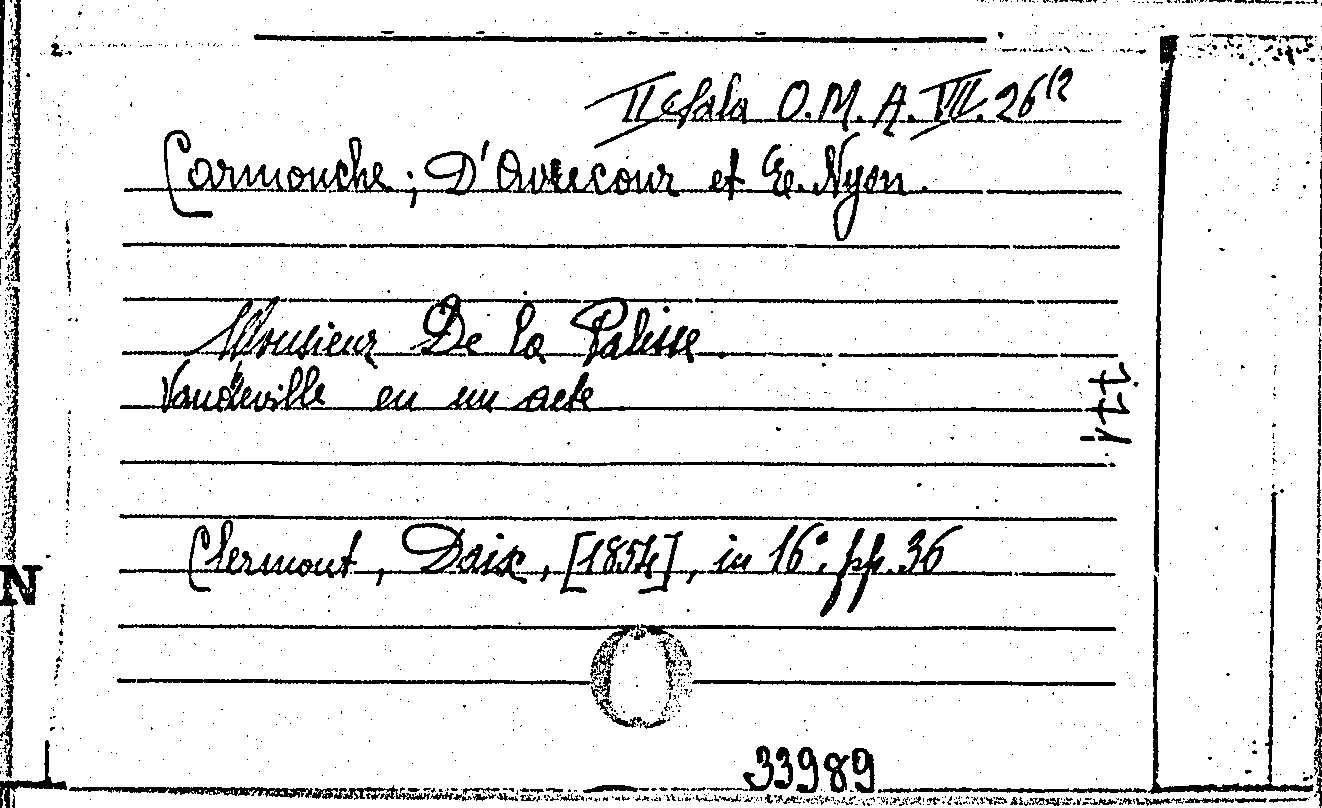 II Sala O.M. A. VII. 26¹²
Carmouche ; D'Avrecour et E. Nyon.
Monsieur De la Palisse.
Vaudeville en un acte
Clermont, Daix, [1854], in 16°. pp. 36
N
33989